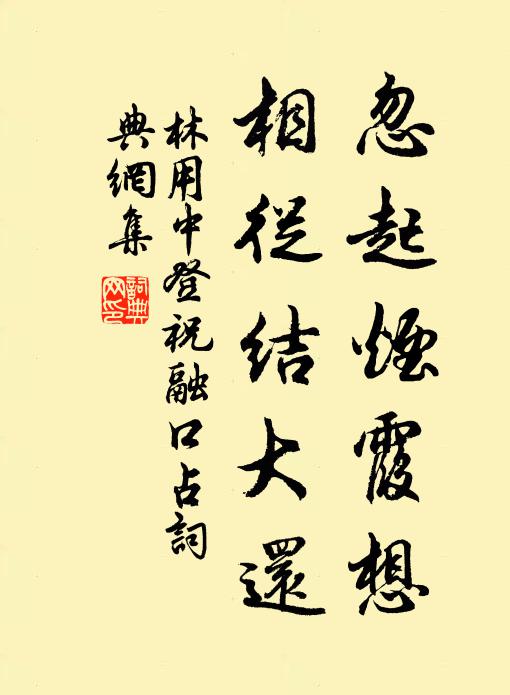 忽起煙霞想
相從結大還
林用中登祝融口占詞
典網集
詞典
网印